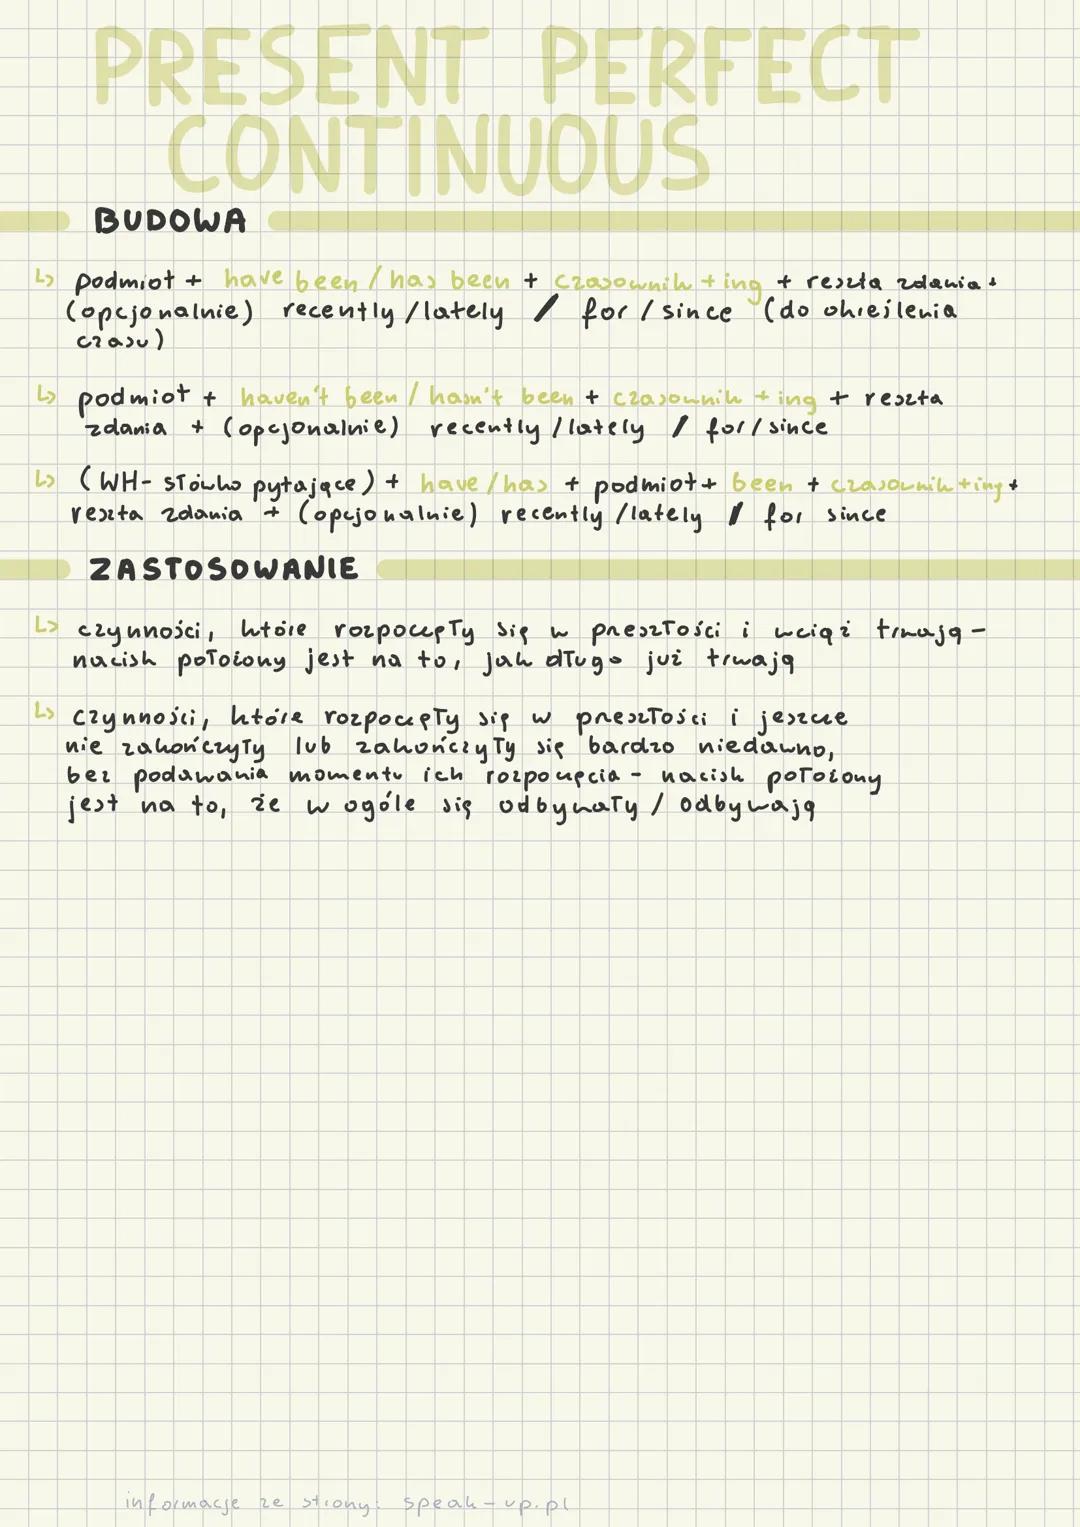 PRESENT PERFECT
CONTINUOUS
BUDOWA
↳ podmiot + have been / has been + czasownik + ing + reszta zdania +
(opcjonalnie) recently / lately / for / since (do określenia
czasu)
↳ podmiot + haven't been / hasn't been + czasownik + ing + reszta
zdania + (opcjonalnie) recently / lately / for / since
↳ (WH- słówko pytające) + have / has + podmiot + been + czasownik + ing +
reszta zdania + (opcjonalnie) recently / lately / for since
ZASTOSOWANIE
↳ czynności, które rozpoczęły się w przeszłości i wciąż trwają -
nacisk położony jest na to, jak długo już trwają
↳ czynności, które rozpoczęły się w przeszłości i jeszcze
nie zakończyły lub zakończyły się bardzo niedawno,
bez podawania momentu ich rozpoczęcia - nacisk położony
jest na to, że w ogóle się odbywały / odbywają
informacje ze strony: speak-up.pl